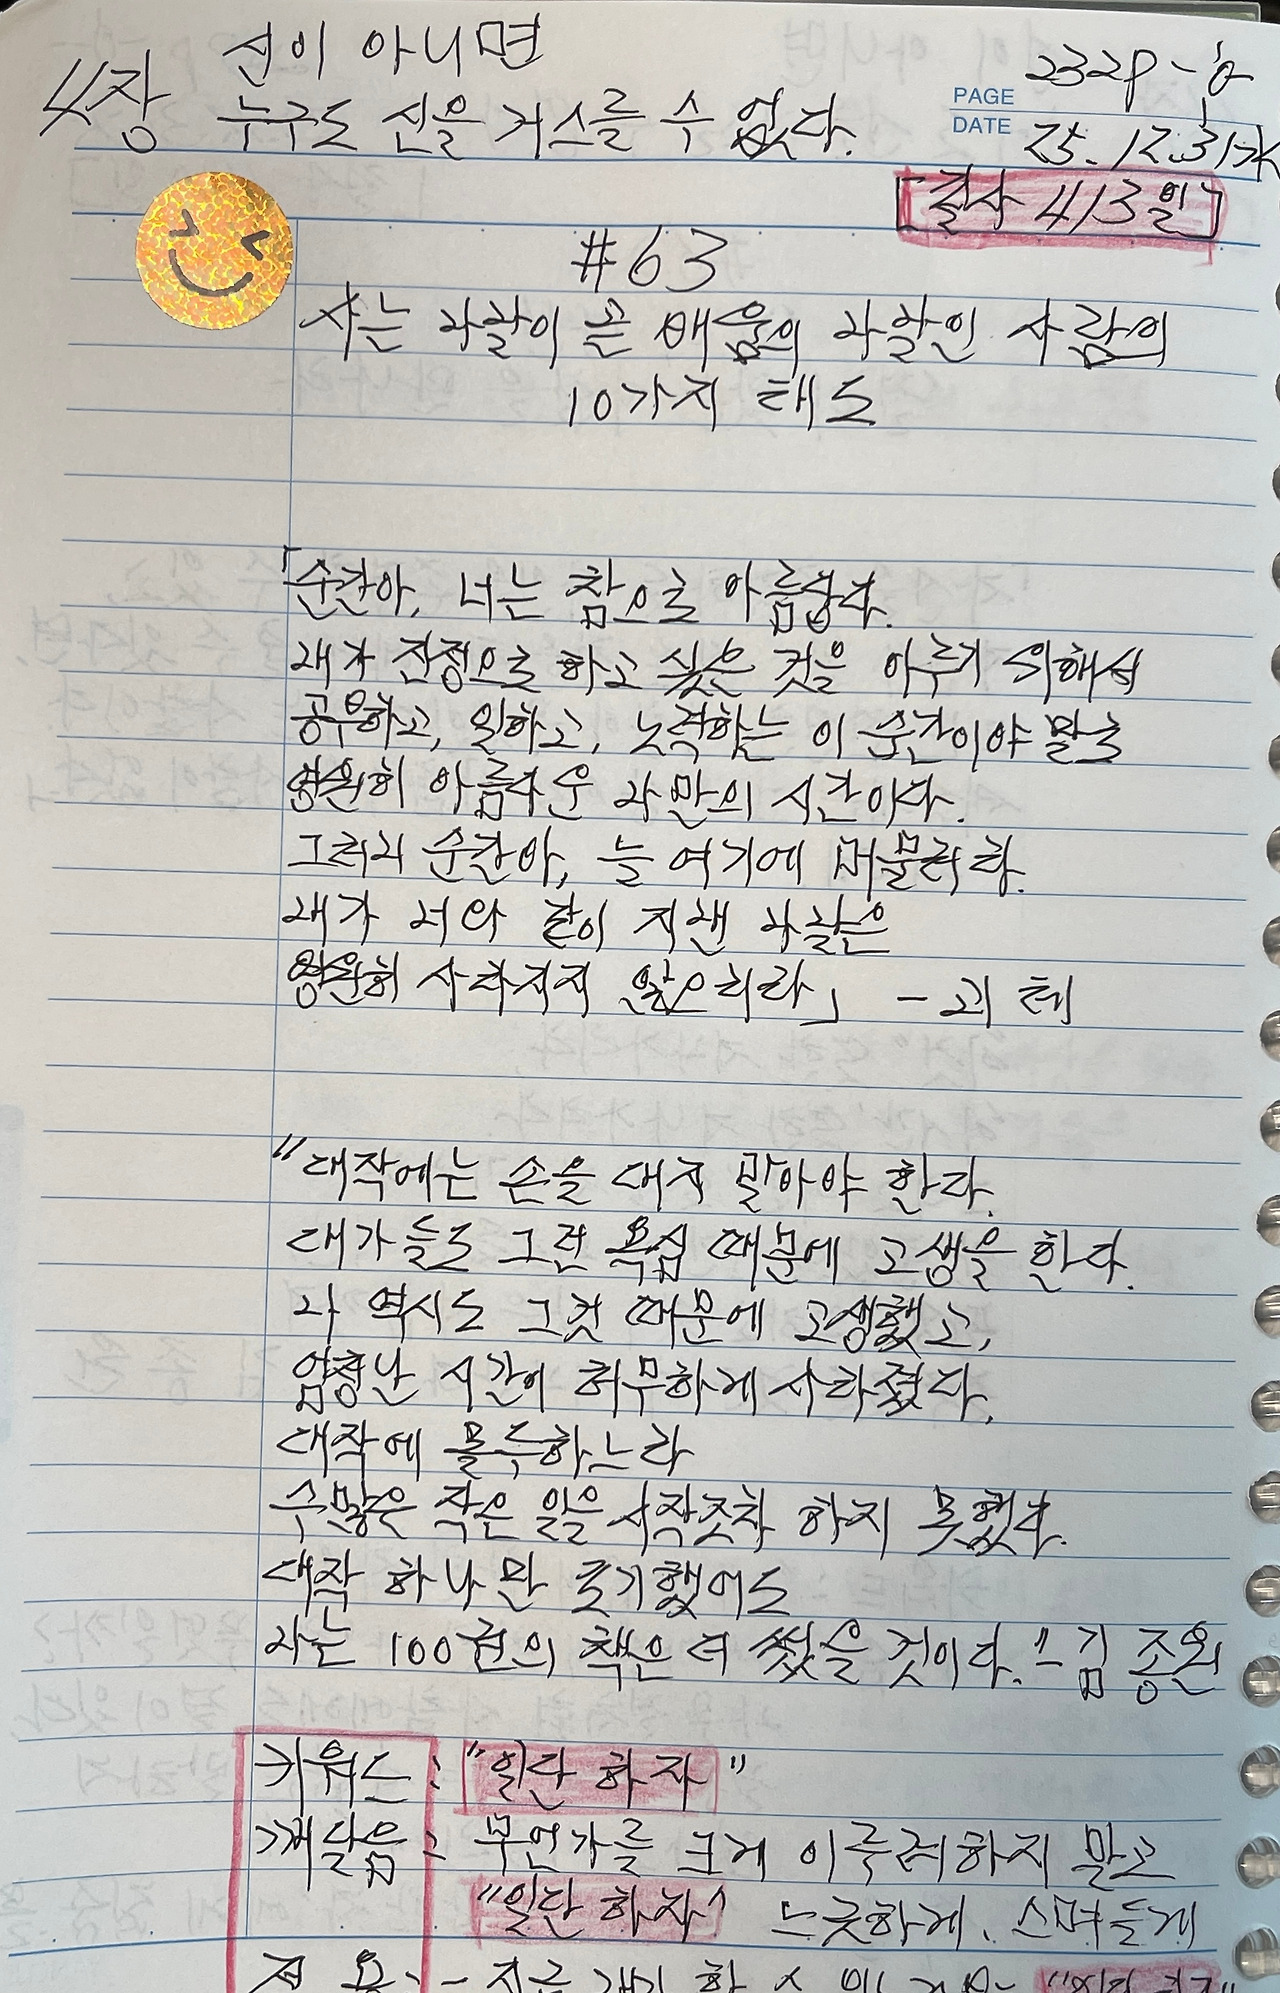 4장 신이 아니면
누구도 신을 거스를 수 없다.
232P-상
PAGE
DATE 25.12.31水
「필사 413일」
#63
사는 나날이 곧 배움의 나날인 사람의
10가지 태도
「순간아, 너는 참으로 아름답다.
내가 진정으로 하고 싶은 것을 이루기 위해서
공부하고, 일하고, 노력하는 이 순간이야 말로
영원히 아름다운 나만의 시간이다.
그러니 순간아, 늘 여기에 머물러라.
내가 너와 같이 지낸 나날은
영원히 사라지지 않으리라」 - 괴테
"대작에는 손을 대지 말아야 한다.
대가들도 그런 욕심 때문에 고생을 한다.
나 역시도 그것 때문에 고생했고,
엄청난 시간이 허무하게 사라졌다.
대작에 몰두하느라
수많은 작은 일을 시작조차 하지 못했다.
대작 하나만 포기했어도
나는 100권의 책은 더 썼을 것이다." - 김종원
키워드 : "일단 하자"
깨달음 : 무언가를 크게 이루려하지 말고
"일단 하자" 느긋하게, 스며들게
적용 : - 지금 내가 할 수 있는